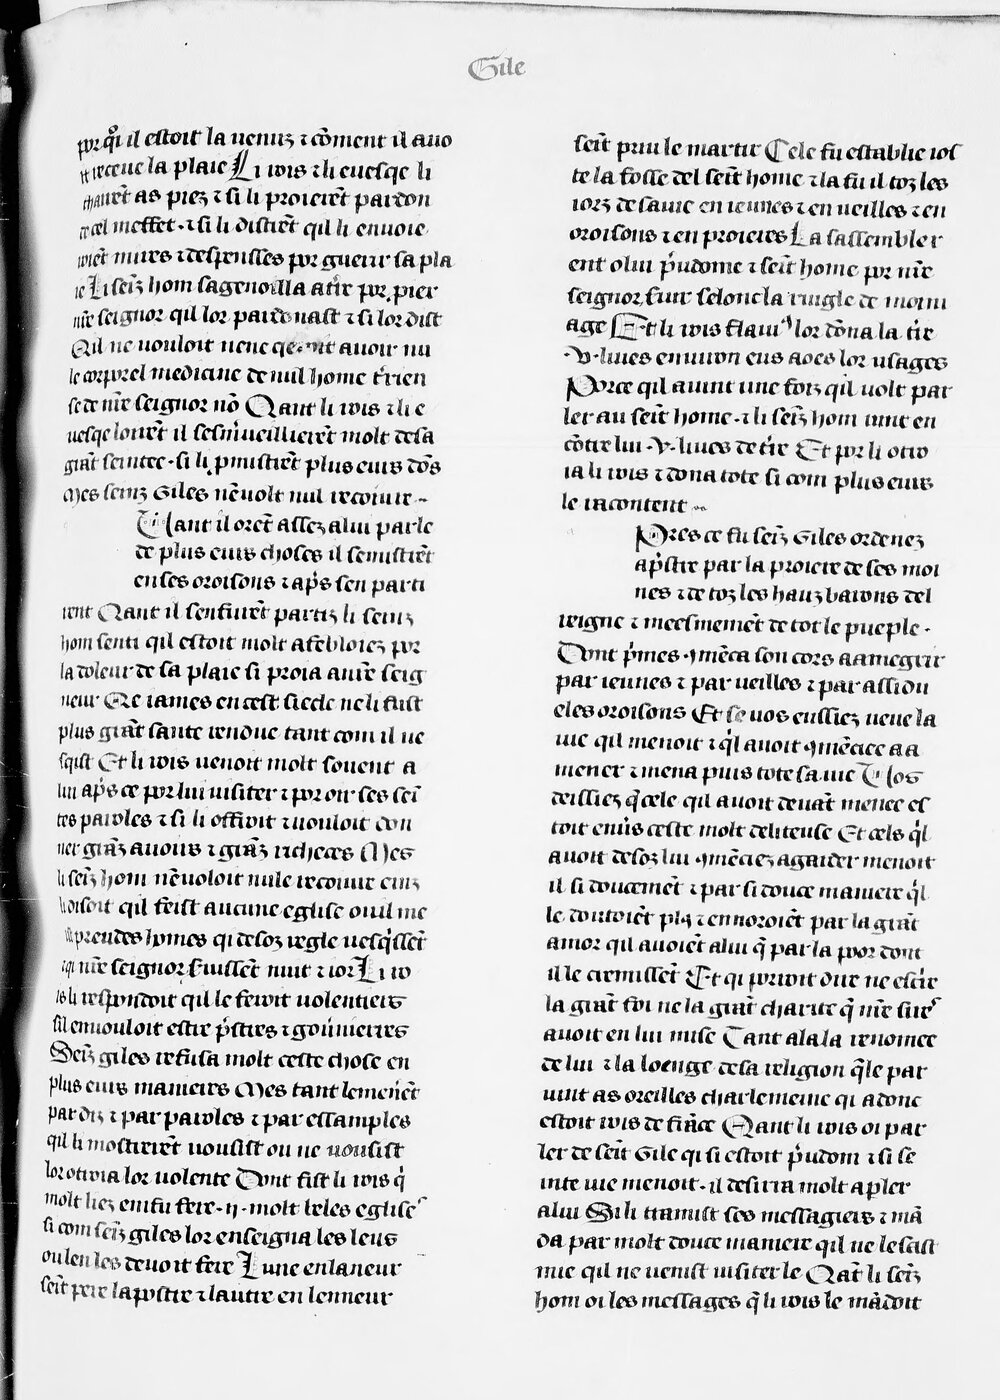 Gile
por qͥi il estoit la uenuz ⁊ cōment il auo
it receue la plaie Li rois ⁊ li euesqe li
chairēt as piez ⁊ si li proierēt pardon
de cel meffet · ⁊ si li distrēt qil li enuoie
roiēt mires ⁊ despensses por guerir sa pla
ie Li seīz hom sagenoilla a tͥre por pier
nr̄e seignor qil lor pardonast ⁊ si lor dist
Qil ne uouloit auoir nu
le corporel medicine de nul home tͥrien
se de nr̄e seignor nō Qant li rois ⁊ li e
uesqe loirēt il sesmͥueillierēt molt de sa
grāt seintee · si li pmistrēt plus eurs dōs
Mes seinz Giles nē uolt nul receiure
Qant il orēt assez a lui parle
de plus eurs choses il semistrēt
en ses oroisons ⁊ ap̄s sen parti
rent Qant il senfurēt partiz li seinz
hom senti qil estoit molt afebloiez por
la doleur de sa plaie si proia a nr̄e seig
neur Qe iames en cest siecle ne li fust
plus grāt sante rendue tant com il ue
sqist Et li rois uenoit molt souent a
lui ap̄s ce por lui uisiter ⁊ por oir ses seī
tes paroles ⁊ si li offroit ⁊ uouloit don
ner grāz auoirs ⁊ grāz richeces Mes
li seīz hom nē uoloit nule receiure einz
li disoit qil feist aucune eglise ou il me
ist preudes homes qi desoz regle uesqͥssēt
⁊ qi nr̄e seignor seruissēt nuit ⁊ ior Li ro
is li respondoit qil le feroit uolentiers
sil en uouloit estre p̄stres ⁊ gou͛nierres
Seīz giles refusa molt ceste chose en
plus eurs manieres Mes tant lemen͛ēt
par diz ⁊ par paroles ⁊ par essamples
qil li mostrerēt uousist ou ne uousist
lor otroia lor uolente Dont fist li rois qͥ
molt liez en fu fere · ii · molt beles eglises
si com seīz giles lor enseigna les leus
ou len les deuoit fere Lune en laneur
seīt pere lapostre ⁊ lautre en lenneur
seīt priu le martir Cele fu establie ios
te la fosse del seīt home ⁊ la fu il toz les
iorz de sa uie en ieunes ⁊ en ueilles ⁊ en
oroisons ⁊ en proieres La sassembler
ent o lui pͥudome ⁊ seīt home por nr̄e
seignor seruir selonc la riugle de moni
age Et li rois flauiꝰ lor dōna la tͥre
· v · liues enuiron eus a oes lor usages
Porce qil auint une foiz qil uolt par
ler au seīt home · ⁊ li seīz hom uint en
cōtre lui · v · liues de tͥre Et por li otro
ia li rois ⁊ dona tote si com plus eurs
le racontent
Apres ce fu seīz Giles ordenez
ap̄stre par la proiere de ses moi
nes ⁊ de toz les hauz barons del
reigne ⁊ meesmemēt de tot le pueple ·
Dont pͥmes ꝯmēca son cors a amegrir
par ieunes ⁊ par ueilles ⁊ par assidu
eles oroisons Et se uos eussiez ueue la
uie qil menoit ⁊ qͥl auoit ꝯmēciee a a
mener ⁊ mena puis tote sa uie Uos
deissiez q̄ cele qil auoit deuāt menee es
toit enu͛s ceste molt deliteuse Et cels qͥl
auoit desoz lui ꝯmēciez a garder menoit
il si doucemēt ⁊ par si douce maniere qͥl
le doutoiēt plꝰ ⁊ ennoroiēt par la grāt
amor qil auoiēt a lui q̄ par la poor dont
il le cremissēt Et qi porroit dire ne escͥre
la grāt foi ne la grāt charite q̄ nr̄e sires
auoit en lui mise Tant ala la renomee
de lui ⁊ la loenge de sa religion q̄le par
uint as oreilles charlemeine qi adonc
estoit rois de frāce Qant li rois oi par
ler de seīt Gile qi si estoit pͥudom ⁊ si se
inte uie menoit · il desirra molt a pler
a lui Si li tramist ses messagiers ⁊ mā
da par molt douce maniere qil ne lesast
mie qil ne uenist uisiter le Qāt li seīz
hom oi les messages q̄ li rois le mādoit